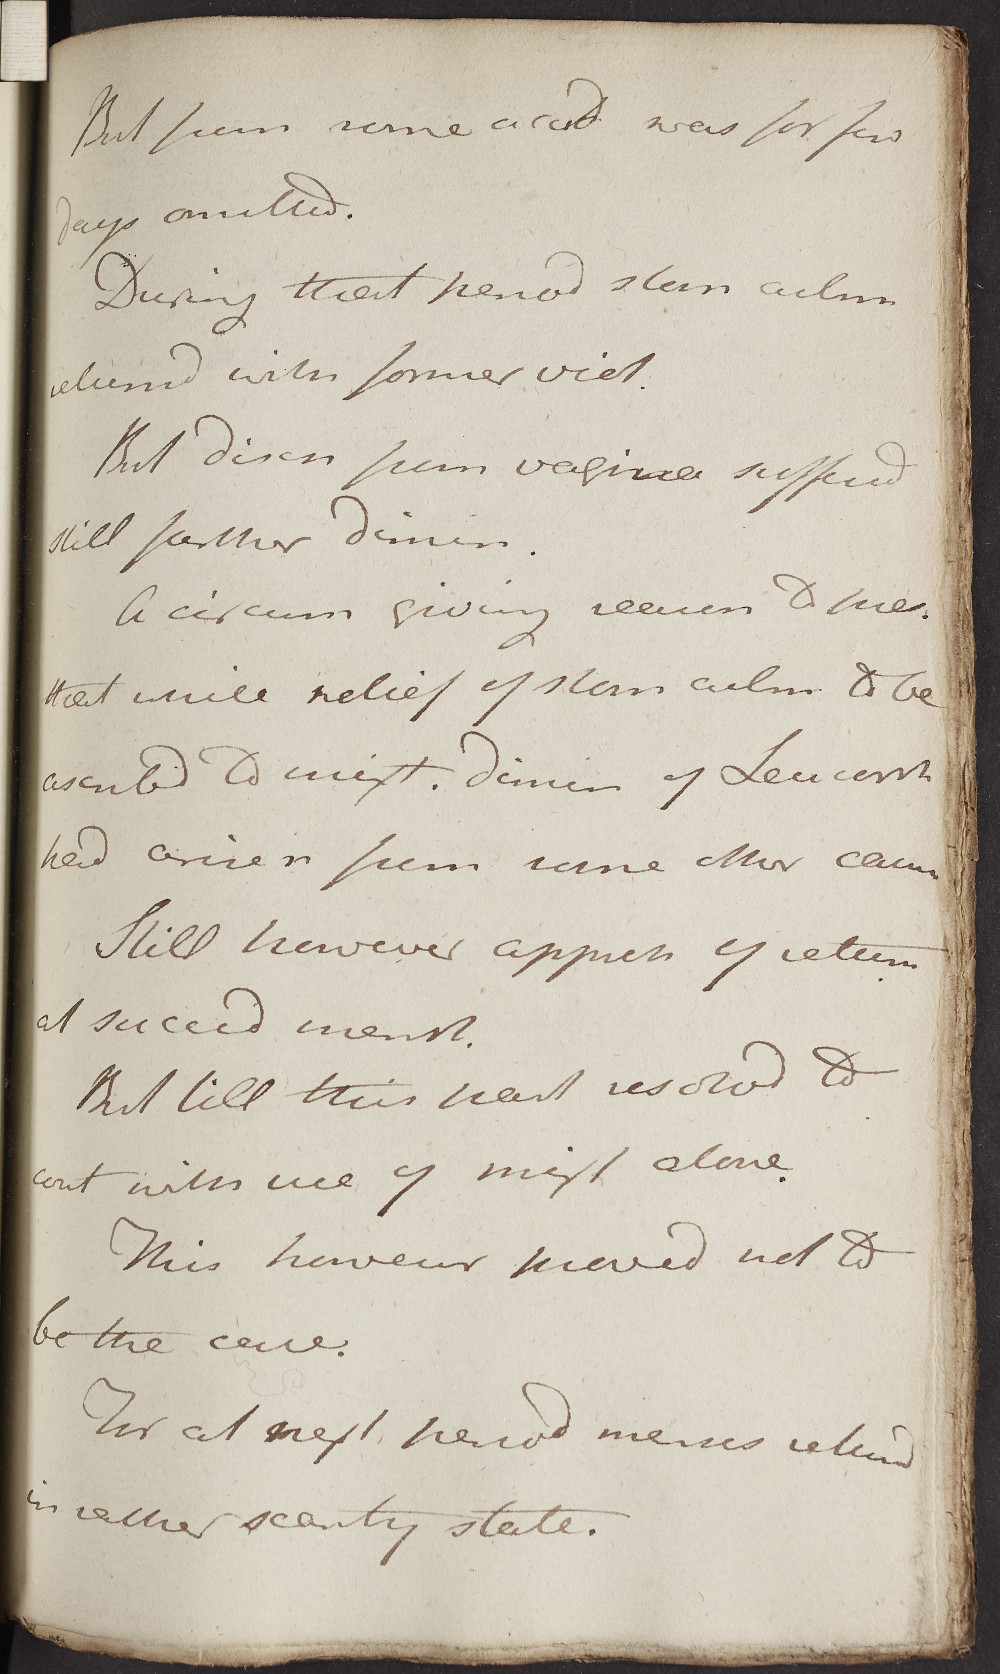 But from some accid was for few
days omitted.
During that period stom culm
returnd with former viol.
But discn from vagina sufferd
still farther dimin.
A circum giving reason to pres.
that while relief of stom culm to be
ascribd to mixt. dimin of Leucorrh
had arisen from some other caus
Still however appreh of return
at succeed menst.
But till this past resolvd to
cont with use of mixt alone.
This however proved not to
be the case.
For at next period menses returnd
in rather scanty state.